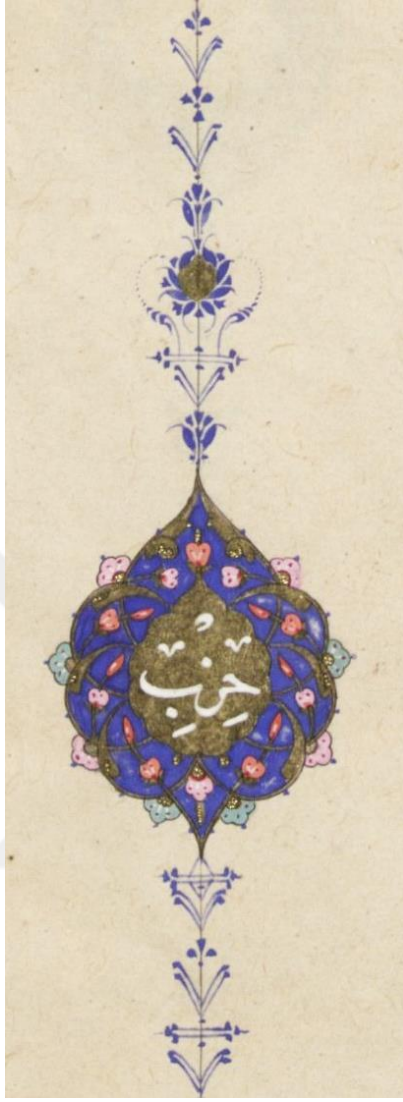 حِزْبِ